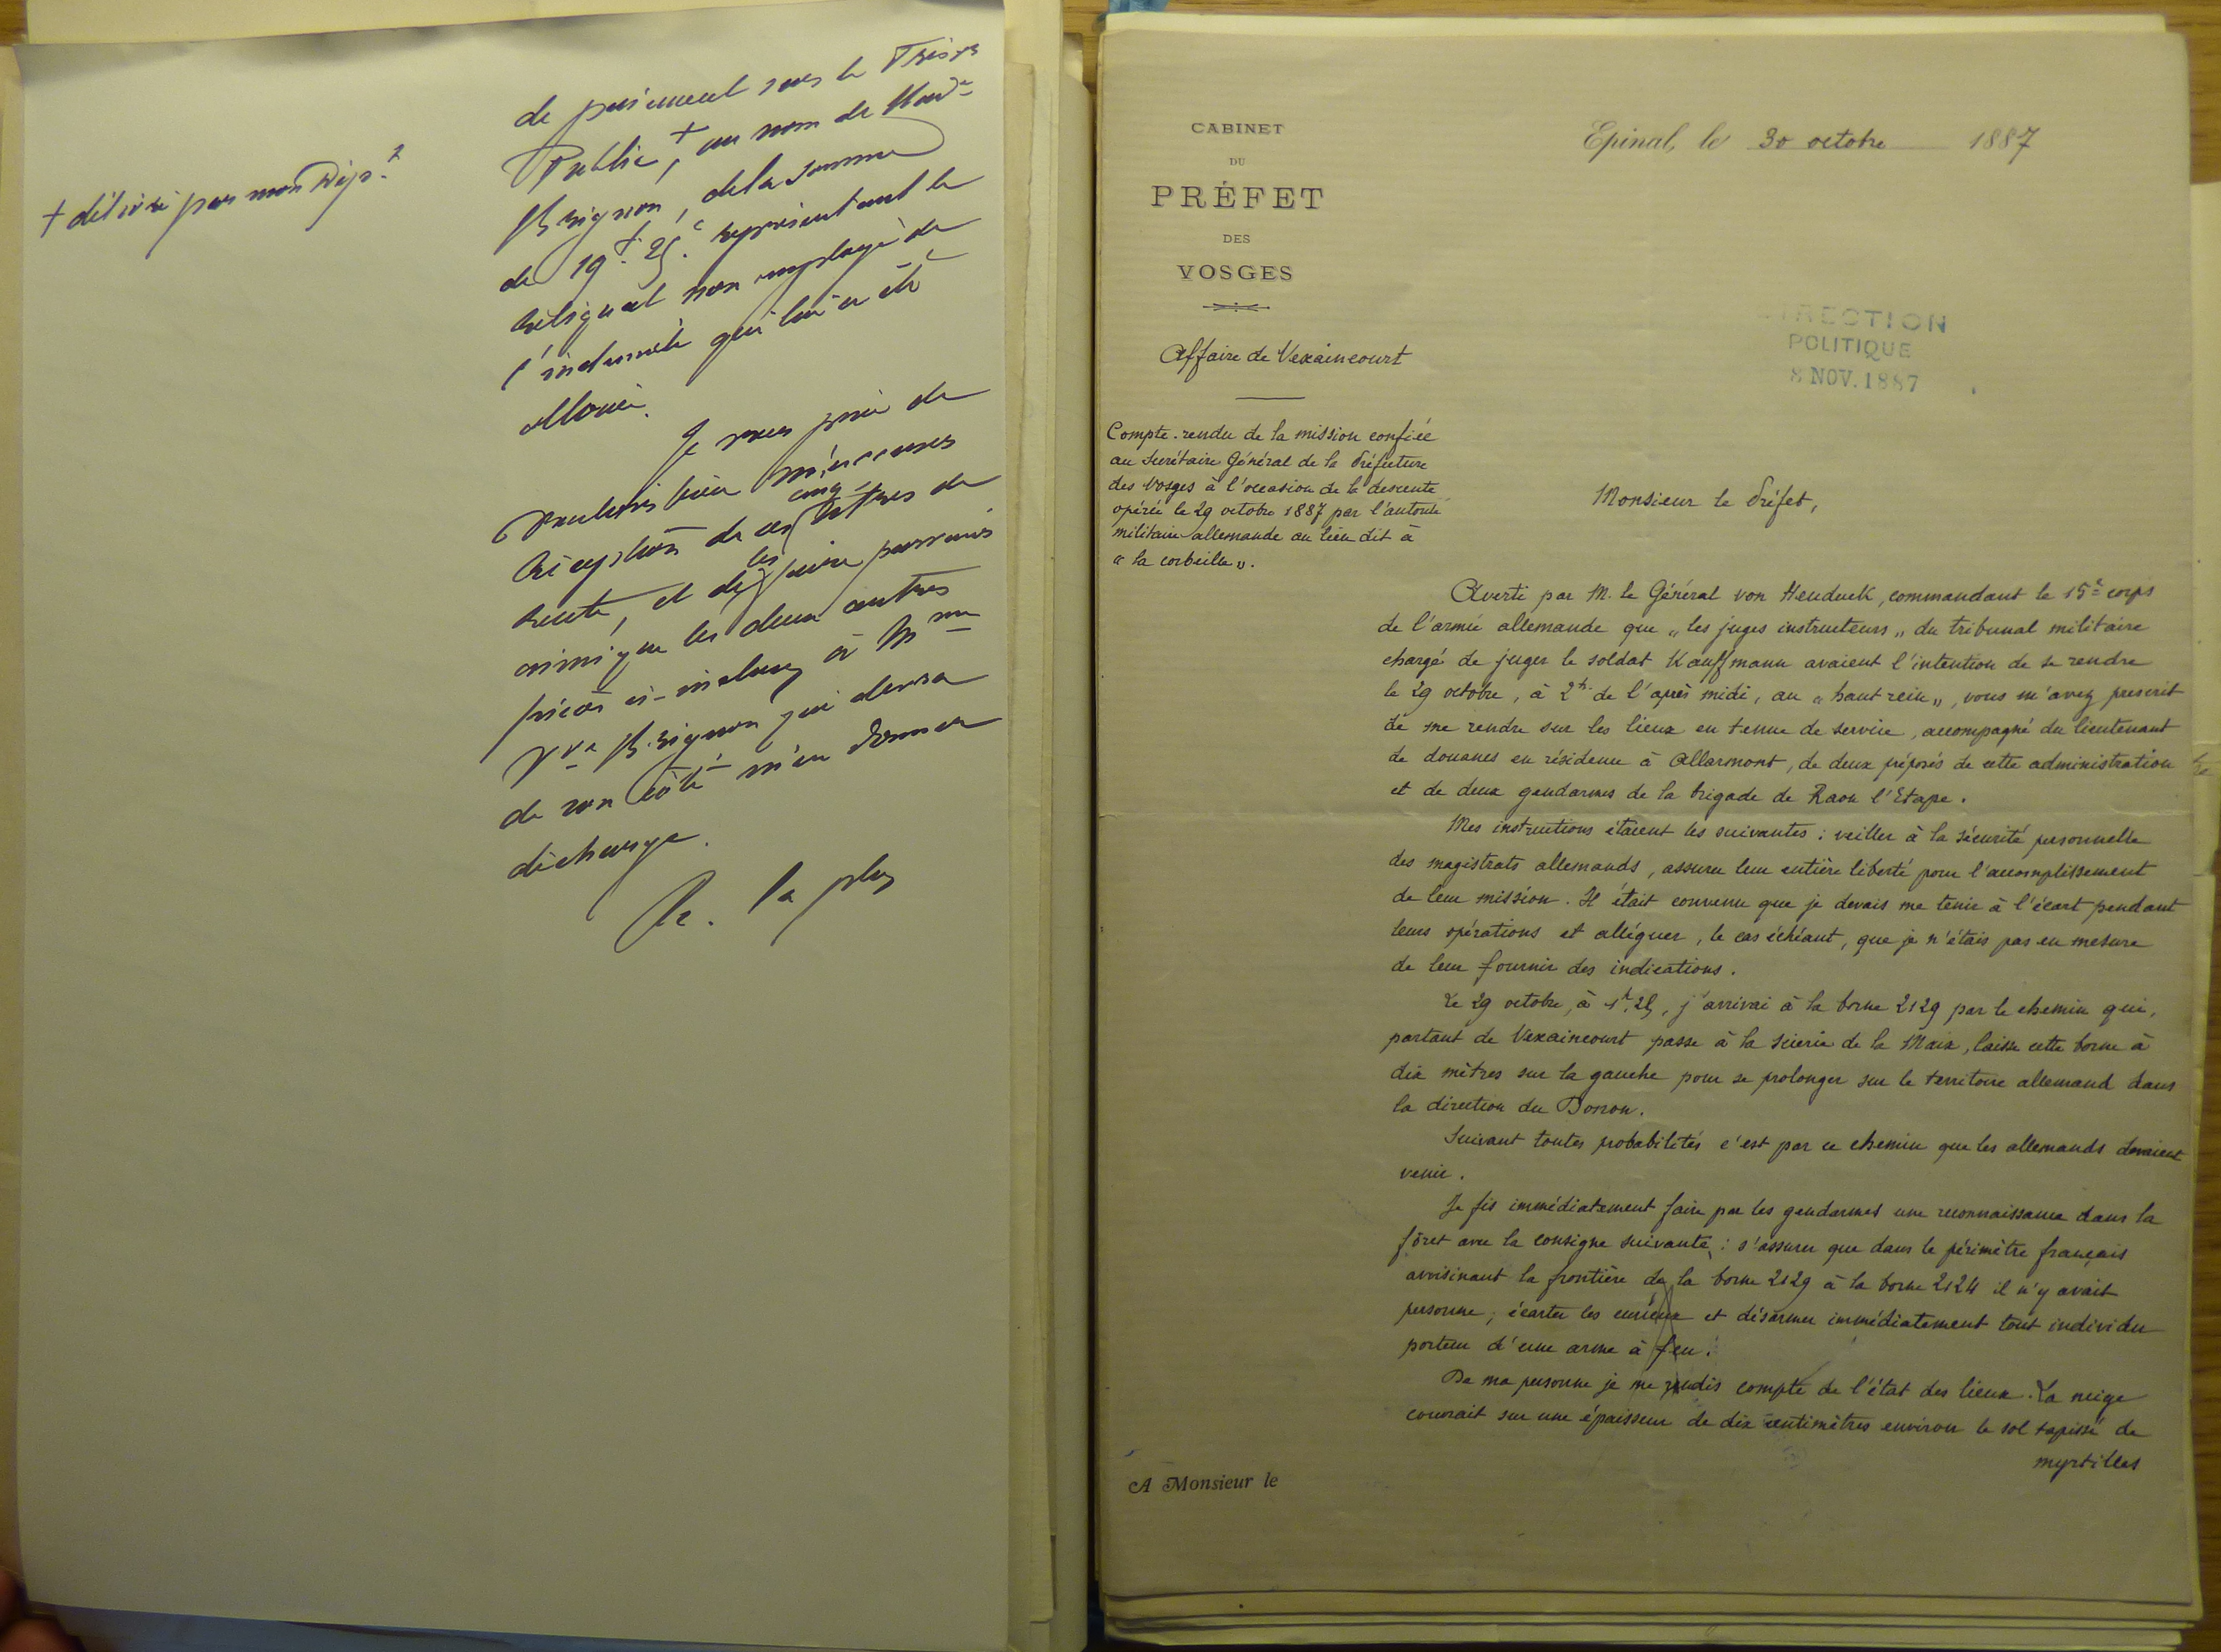 de paiement sur le Trésor
Public +, au nom de Mad.e
Brignon, de la somme
+ délivré par mon Dép.t
de 19.f 25.c représentant le
reliquat non employé de
l'indemnité qui lui a été
allouée.
Je vous prie de
vouloir bien m'accuser
cinq
réception de ces lettres de
les
rente, et de faire parvenir
ainsi que les deux autres
pièces ci-incluses à Mme
Vve Brignon qui devra
de son côté m'en donner
décharge.
R. la plus
CABINET
DU
PRÉFET
DES
VOSGES
Epinal, le 30 octobre 1887
DIRECTION
POLITIQUE
8 NOV. 1887
Affaire de Vexaincourt
Compte-rendu de la mission confiée
au Secrétaire Général de la Préfecture
des Vosges à l'occasion de la descente
opérée le 29 octobre 1887 par l'autorité
militaire allemande au lieu dit à
"la corbeille".
Monsieur le Préfet,
Averti par M. le Général von Heuduck, commandant le 15e corps
de l'armée allemande que "les juges instructeurs" du tribunal militaire
chargé de juger le soldat Kauffmann avaient l'intention de se rendre
le 29 octobre, à 2h de l'après midi, au "haut rein", vous m'avez prescrit
de me rendre sur les lieux en tenue de service, accompagné du lieutenant
de douanes en résidence à Allarmont, de deux préposés de cette administration
et de deux gendarmes de la brigade de Raon l'Etape.
Mes instructions étaient les suivantes : veiller à la sécurité personnelle
des magistrats allemands, assurer leur entière liberté pour l'accomplissement
de leur mission. Il était convenu que je devais me tenir à l'écart pendant
leurs opérations et alléguer, le cas échéant, que je n'étais pas en mesure
de leur fournir des indications.
Le 29 octobre, à 1h.25, j'arrivai à la borne 2129 par le chemin qui,
partant de Vexaincourt passe à la scierie de la Maix, laisse cette borne à
dix mètres sur la gauche pour se prolonger sur le territoire allemand dans
la direction du Donon.
Suivant toutes probabilités c'est par ce chemin que les allemands devaient
venir.
Je fis immédiatement faire par les gendarmes une reconnaissance dans la
fôret avec la consigne suivante : s'assurer que dans le périmètre français
avoisinant la frontière de la borne 2129 à la borne 2124 il n'y avait
personne ; écarter les curieux et désarmer immédiatement tout individu
porteur d'une arme à feu.
De ma personne je me rendis compte de l'état des lieux. La neige
couvrait sur une épaisseur de dix centimètres environ le sol tapissé de
myrtilles
A Monsieur le